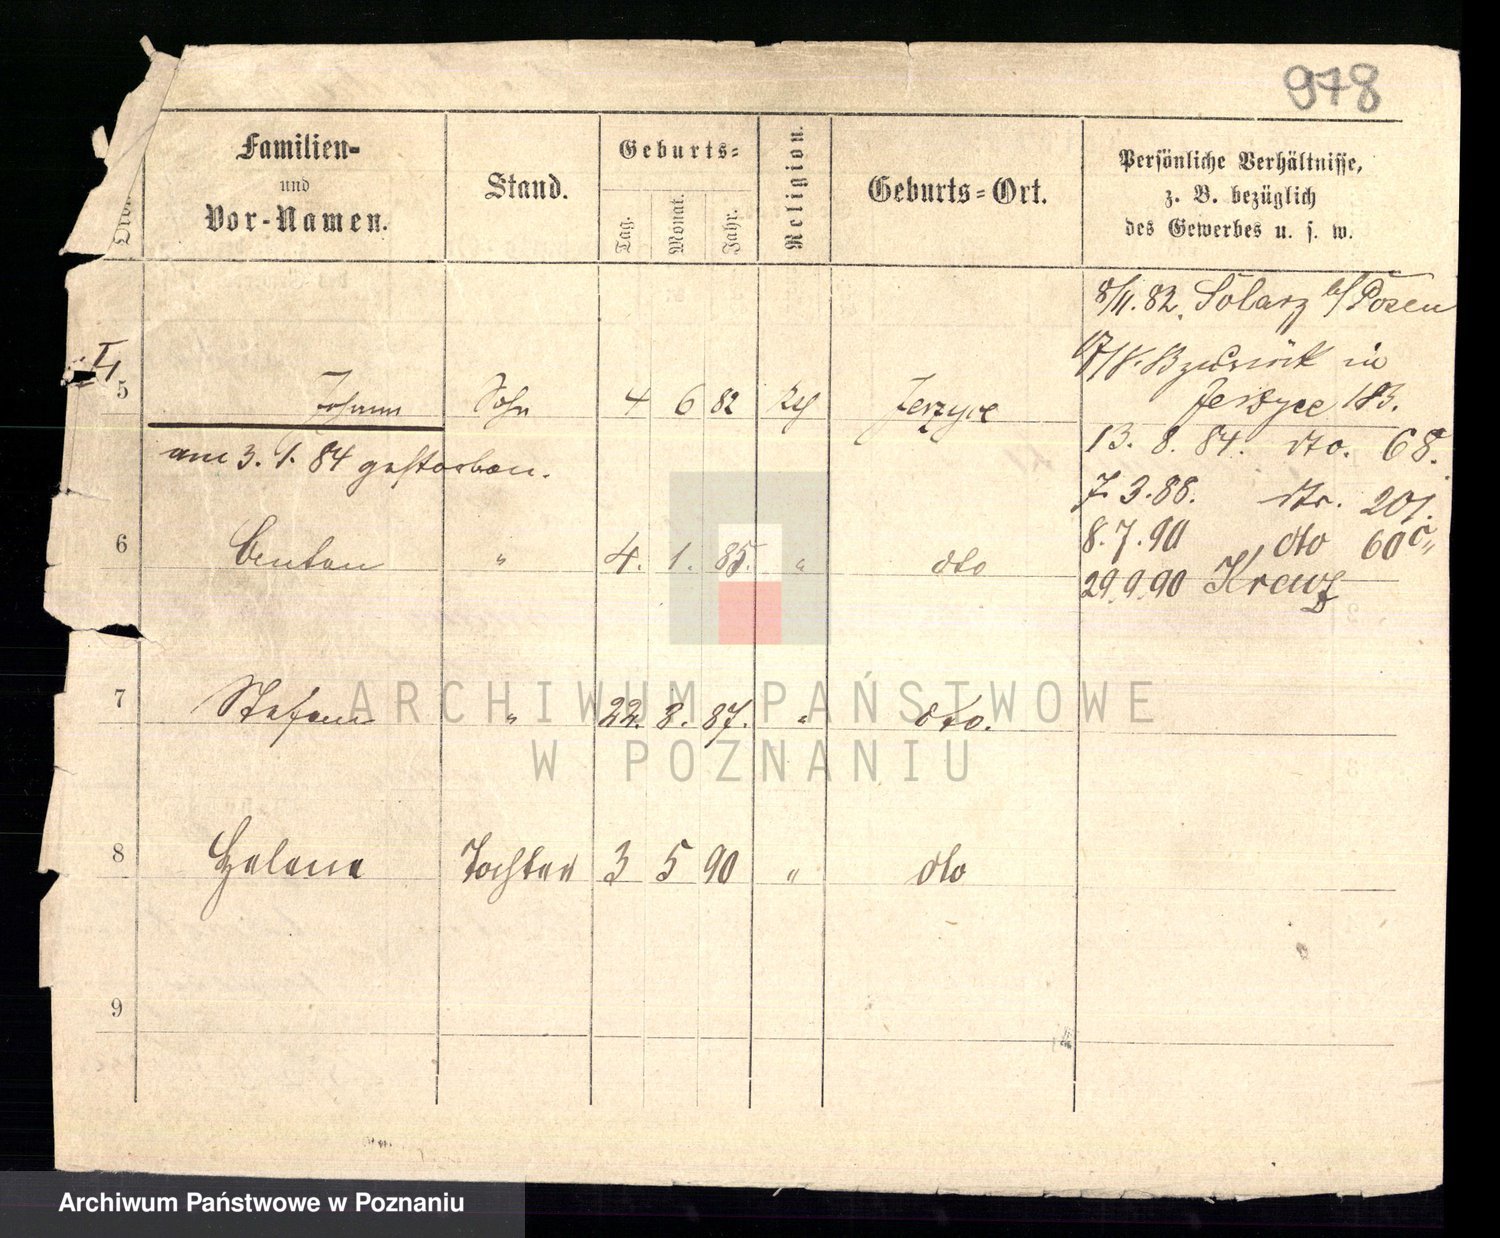 978
Familien-
und
Vor-Namen.
Stand.
Geburts-
Tag.
Monat.
Jahr.
Religion.
Geburts-Ort.
Persönliche Verhältnisse,
z. B. bezüglich
des Gewerbes u. s. w.
8/11. 82. Solacz b/ Posen
zurück in
Jerzyce 183.
5 Johann Sohn 4 6 82 Jerzyce
am 3. 1. 84 gestorben.
13. 8. 84. dto. 68.
7. 3. 88. dto. 201.
8. 7. 90 dto 60c
29. 9. 90 Kreuz
6 " 4. 1. 85. " dto
7 Stefan " 22. 8. 87. " dto.
8 Helene Tochter 3 5 90 " dto
9
ARCHIWUM PAŃSTWOWE
W POZNANIU
Archiwum Państwowe w Poznaniu